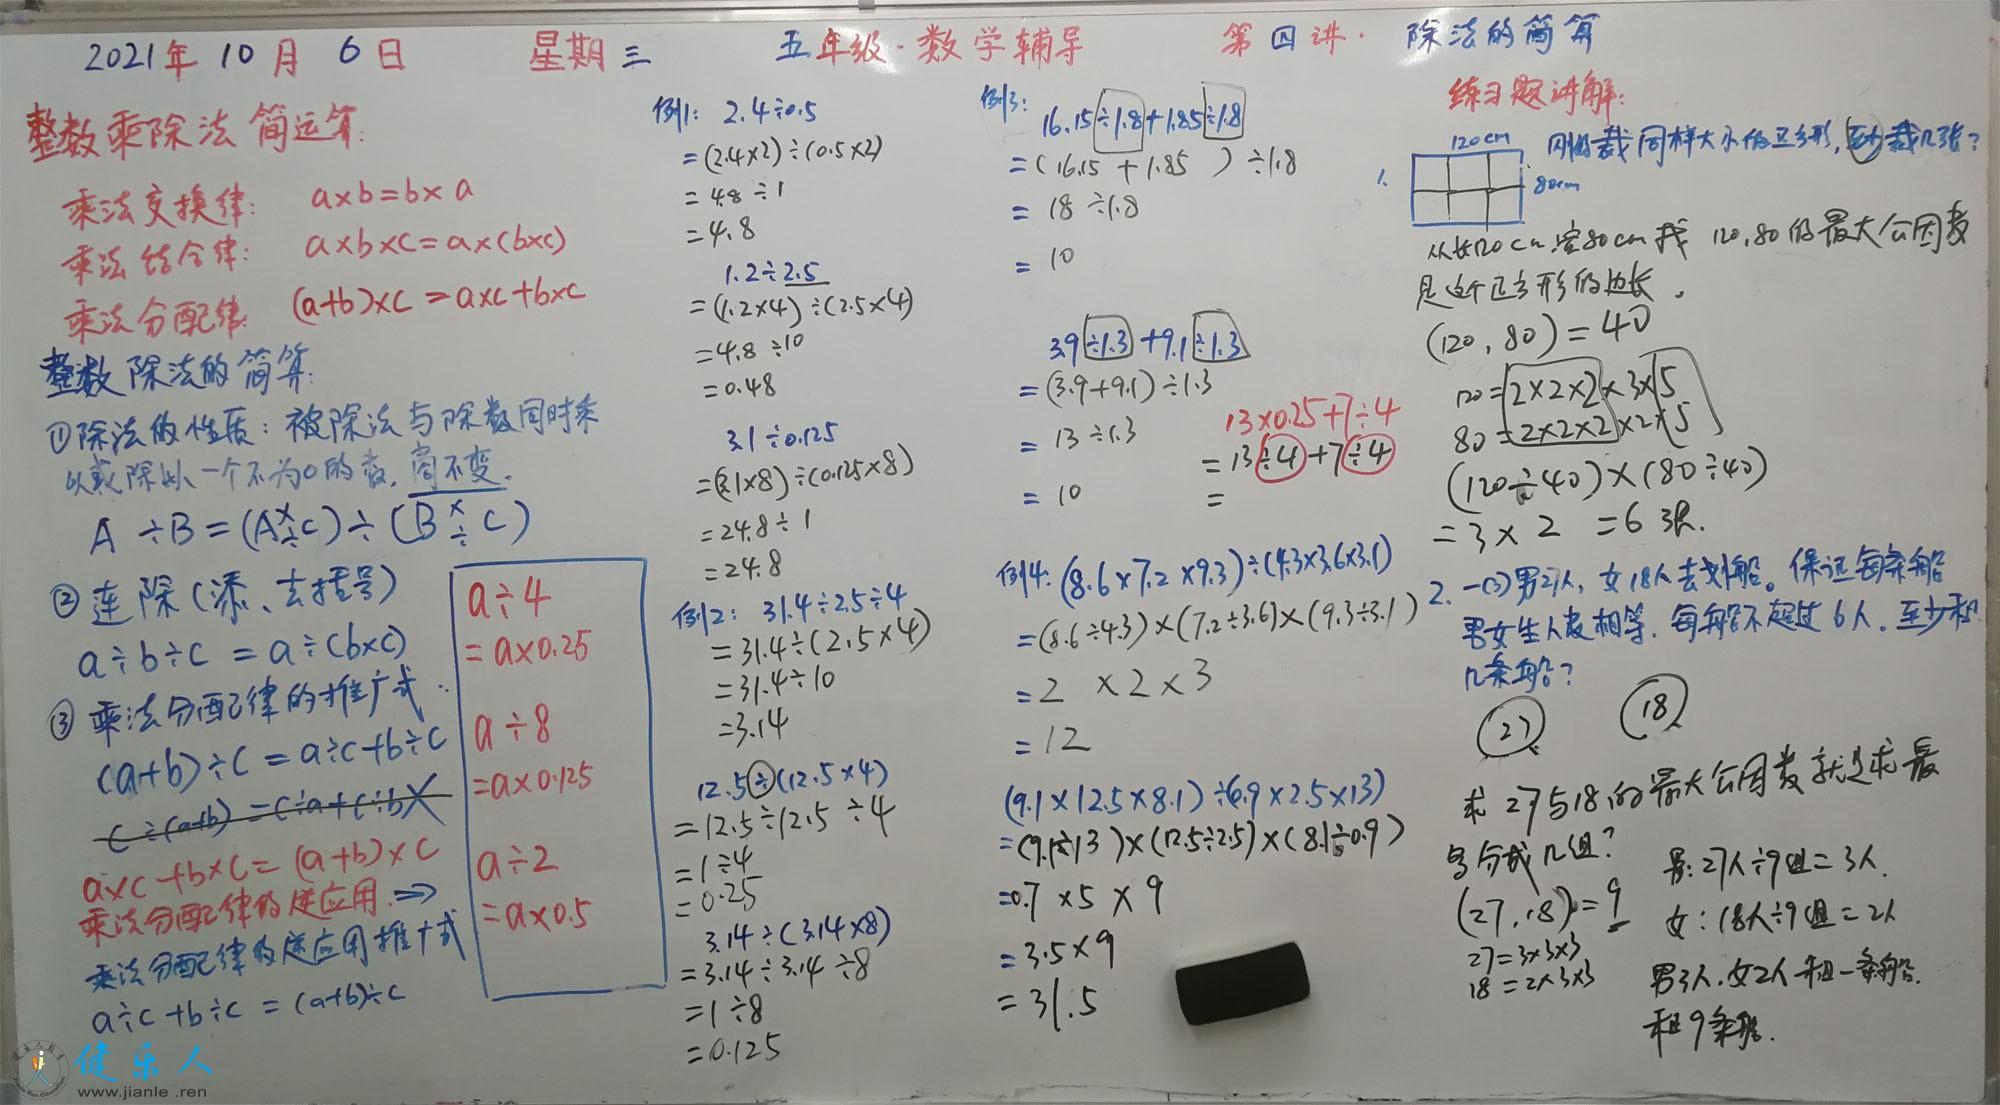 2021年 10月 6日 星期三 五年级·数学辅导 第四讲· 除法的简算
整数乘除法简运算:
乘法交换律: a×b=b×a
乘法结合律: a×b×c=a×(b×c)
乘法分配律: (a+b)×c=a×c+b×c
整数除法的简算:
①除法的性质:被除法与除数同时乘
以或除以一个不为0的数,商不变.
A÷B=(A×÷C)÷(B×÷C)
②连除(添、去括号)
a÷b÷c=a÷(b×c)
③乘法分配律的推广式.
(a+b)÷c=a÷c+b÷c
c÷(a+b)=c÷a+c÷b ×
a×c+b×c=(a+b)×c
乘法分配律的逆应用.⇒
乘法分配律的逆应用推广式
a÷c+b÷c=(a+b)÷c
a÷4
=a×0.25
a÷8
=a×0.125
a÷2
=a×0.5
例1: 2.4÷0.5
=(2.4×2)÷(0.5×2)
=4.8÷1
=4.8
1.2÷2.5
=(1.2×4)÷(2.5×4)
=4.8÷10
=0.48
3.1÷0.125
=(3.1×8)÷(0.125×8)
=24.8÷1
=24.8
例2: 31.4÷2.5÷4
=31.4÷(2.5×4)
=31.4÷10
=3.14
12.5÷(12.5×4)
=12.5÷12.5÷4
=1÷4
=0.25
3.14÷(3.14×8)
=3.14÷3.14÷8
=1÷8
=0.125
例3:
16.15÷1.8+1.85÷1.8
=(16.15+1.85)÷1.8
=18÷1.8
=10
3.9÷1.3+9.1÷1.3
=(3.9+9.1)÷1.3
=13÷1.3
=10
13×0.25+7÷4
=13÷4+7÷4
=
例4: (8.6×7.2×9.3)÷(4.3×3.6×3.1)
=(8.6÷4.3)×(7.2÷3.6)×(9.3÷3.1)
=2×2×3
=12
(9.1×12.5×8.1)÷(0.9×2.5×13)
=(9.1÷13)×(12.5÷2.5)×(8.1÷0.9)
=0.7×5×9
=3.5×9
=31.5
练习题讲解:
1.
120cm
80cm
裁同样大小的正方形,至少裁几张?
从长120cm,宽80cm找 120,80的最大公因数
是这个正方形的边长.
(120,80)=40
120=2×2×2×3×5
80=2×2×2×2×5
(120÷40)×(80÷40)
=3×2=6张.
2.一(2)男27人,女18人去划船。保证每条船
男女生人数相等.每船不超过6人.至少租
几条船?
27 18
求27与18的最大公因数就是求最
多分成几组?
(27,18)=9
27=3×3×3
18=2×3×3
男:27人÷9组=3人.
女:18人÷9组=2人
男3人.女2人租一条船.
租9条船.
健乐人
www.jianle.ren